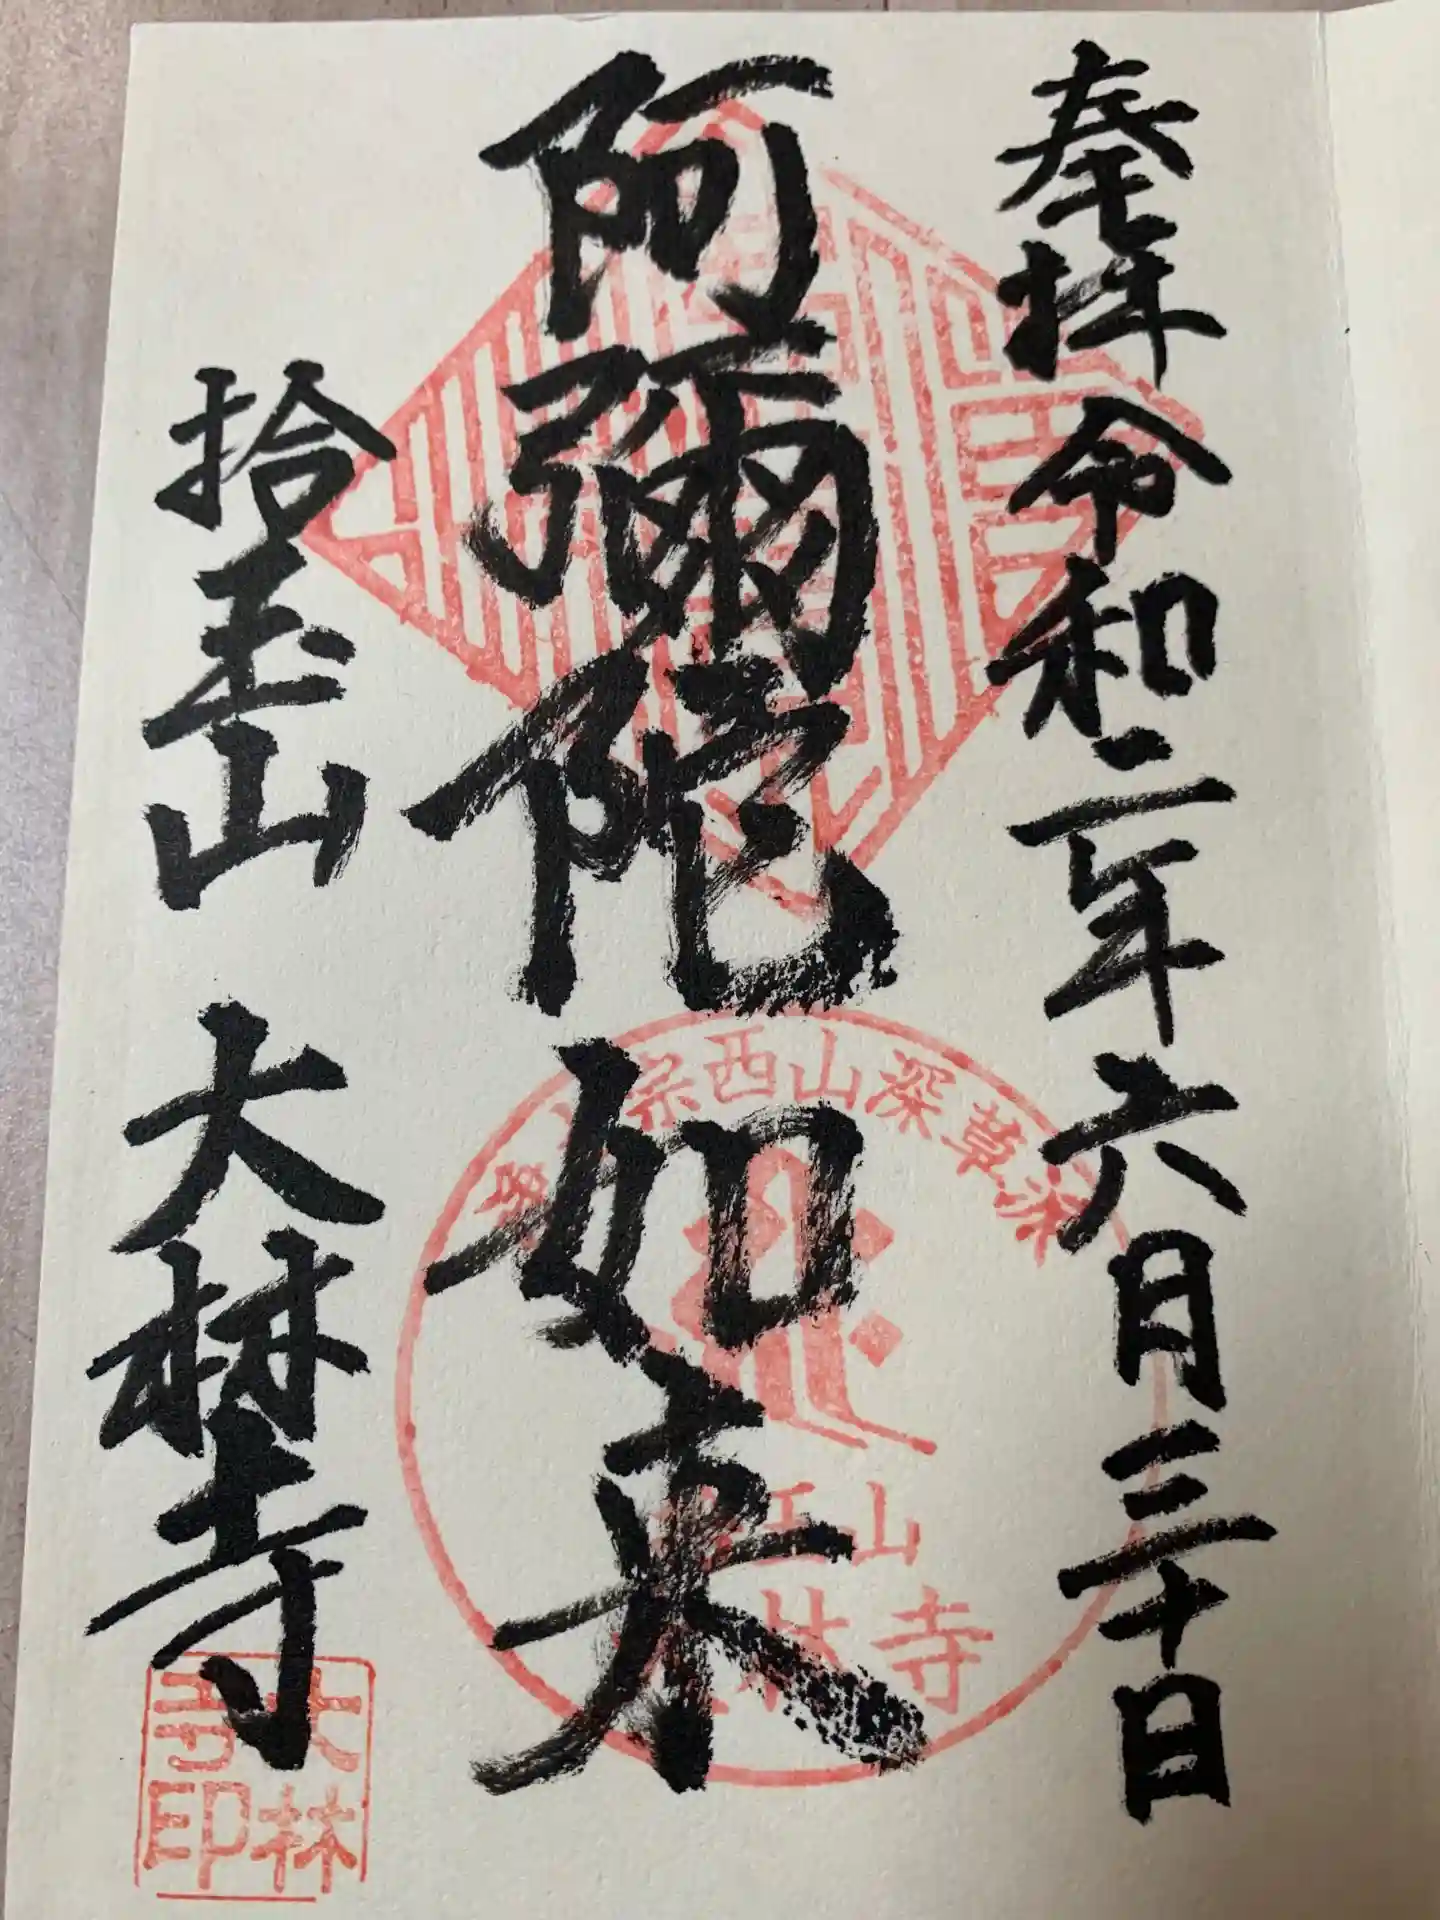 奉拝 令和二年六月三十日
阿彌陀如来
拾玉山 大林寺
宗西山深草派
山
林寺
大林寺印